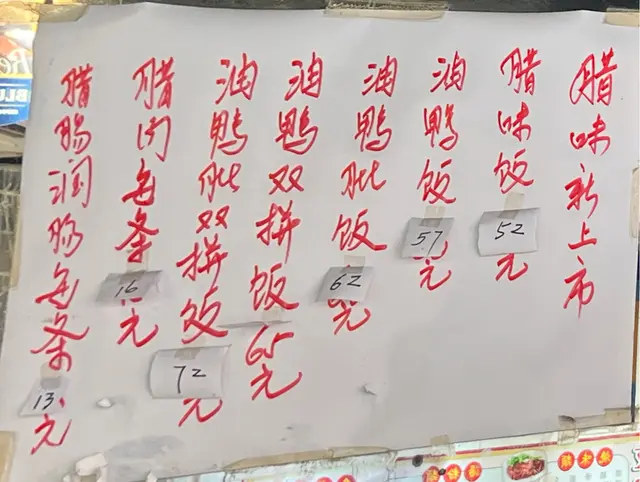 腊味新上市
腊味饭52元
油鸭饭57元
油鸭肶饭62元
油鸭双拼饭65元
油鸭肶双拼饭72元
腊肉每条16元
腊肠润肠每条13元